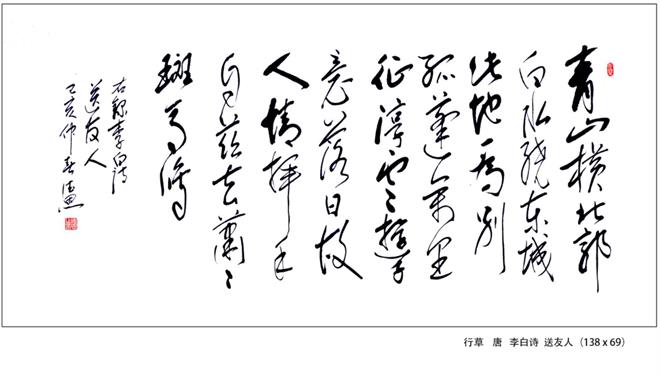 青山横北郭
白水绕东城
此地一为别
孤蓬万里
征浮云游子
意落日故
人情挥手
自兹去萧〻
斑马鸣
右录李白诗
送友人
己亥仲春
行草 唐 李白诗 送友人（138 x 69）